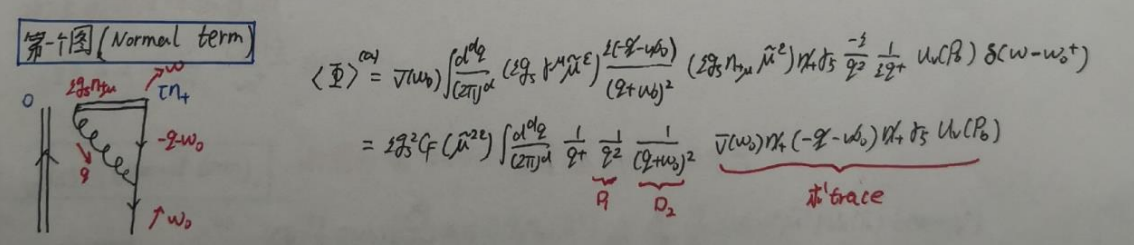 第一个图(Normal term)
0
ig_s n_{+μ}
ω
τn_+
q
-q-ω_0
ω_0
⟨Φ⟩^{(a)} = \bar{v}(ω_0) ∫ \frac{d^d q}{(2π)^d} (ig_s γ^μ \tilde{μ}^ε) \frac{i(-\not{q}-\not{ω}_0)}{(q+ω_0)^2} (ig_s n_{+μ} \tilde{μ}^ε) \not{n}_+ γ_5 \frac{-i}{q^2} \frac{1}{iq^+} u_v(P_b) δ(ω-ω_0^+)
= ig_s^2 C_F (\tilde{μ}^{2ε}) ∫ \frac{d^d q}{(2π)^d} \frac{1}{q^+} \frac{1}{q^2} \frac{1}{(q+ω_0)^2} \bar{v}(ω_0) \not{n}_+ (-\not{q}-\not{ω}_0) \not{n}_+ γ_5 u_v(P_b)
D_2 求trace